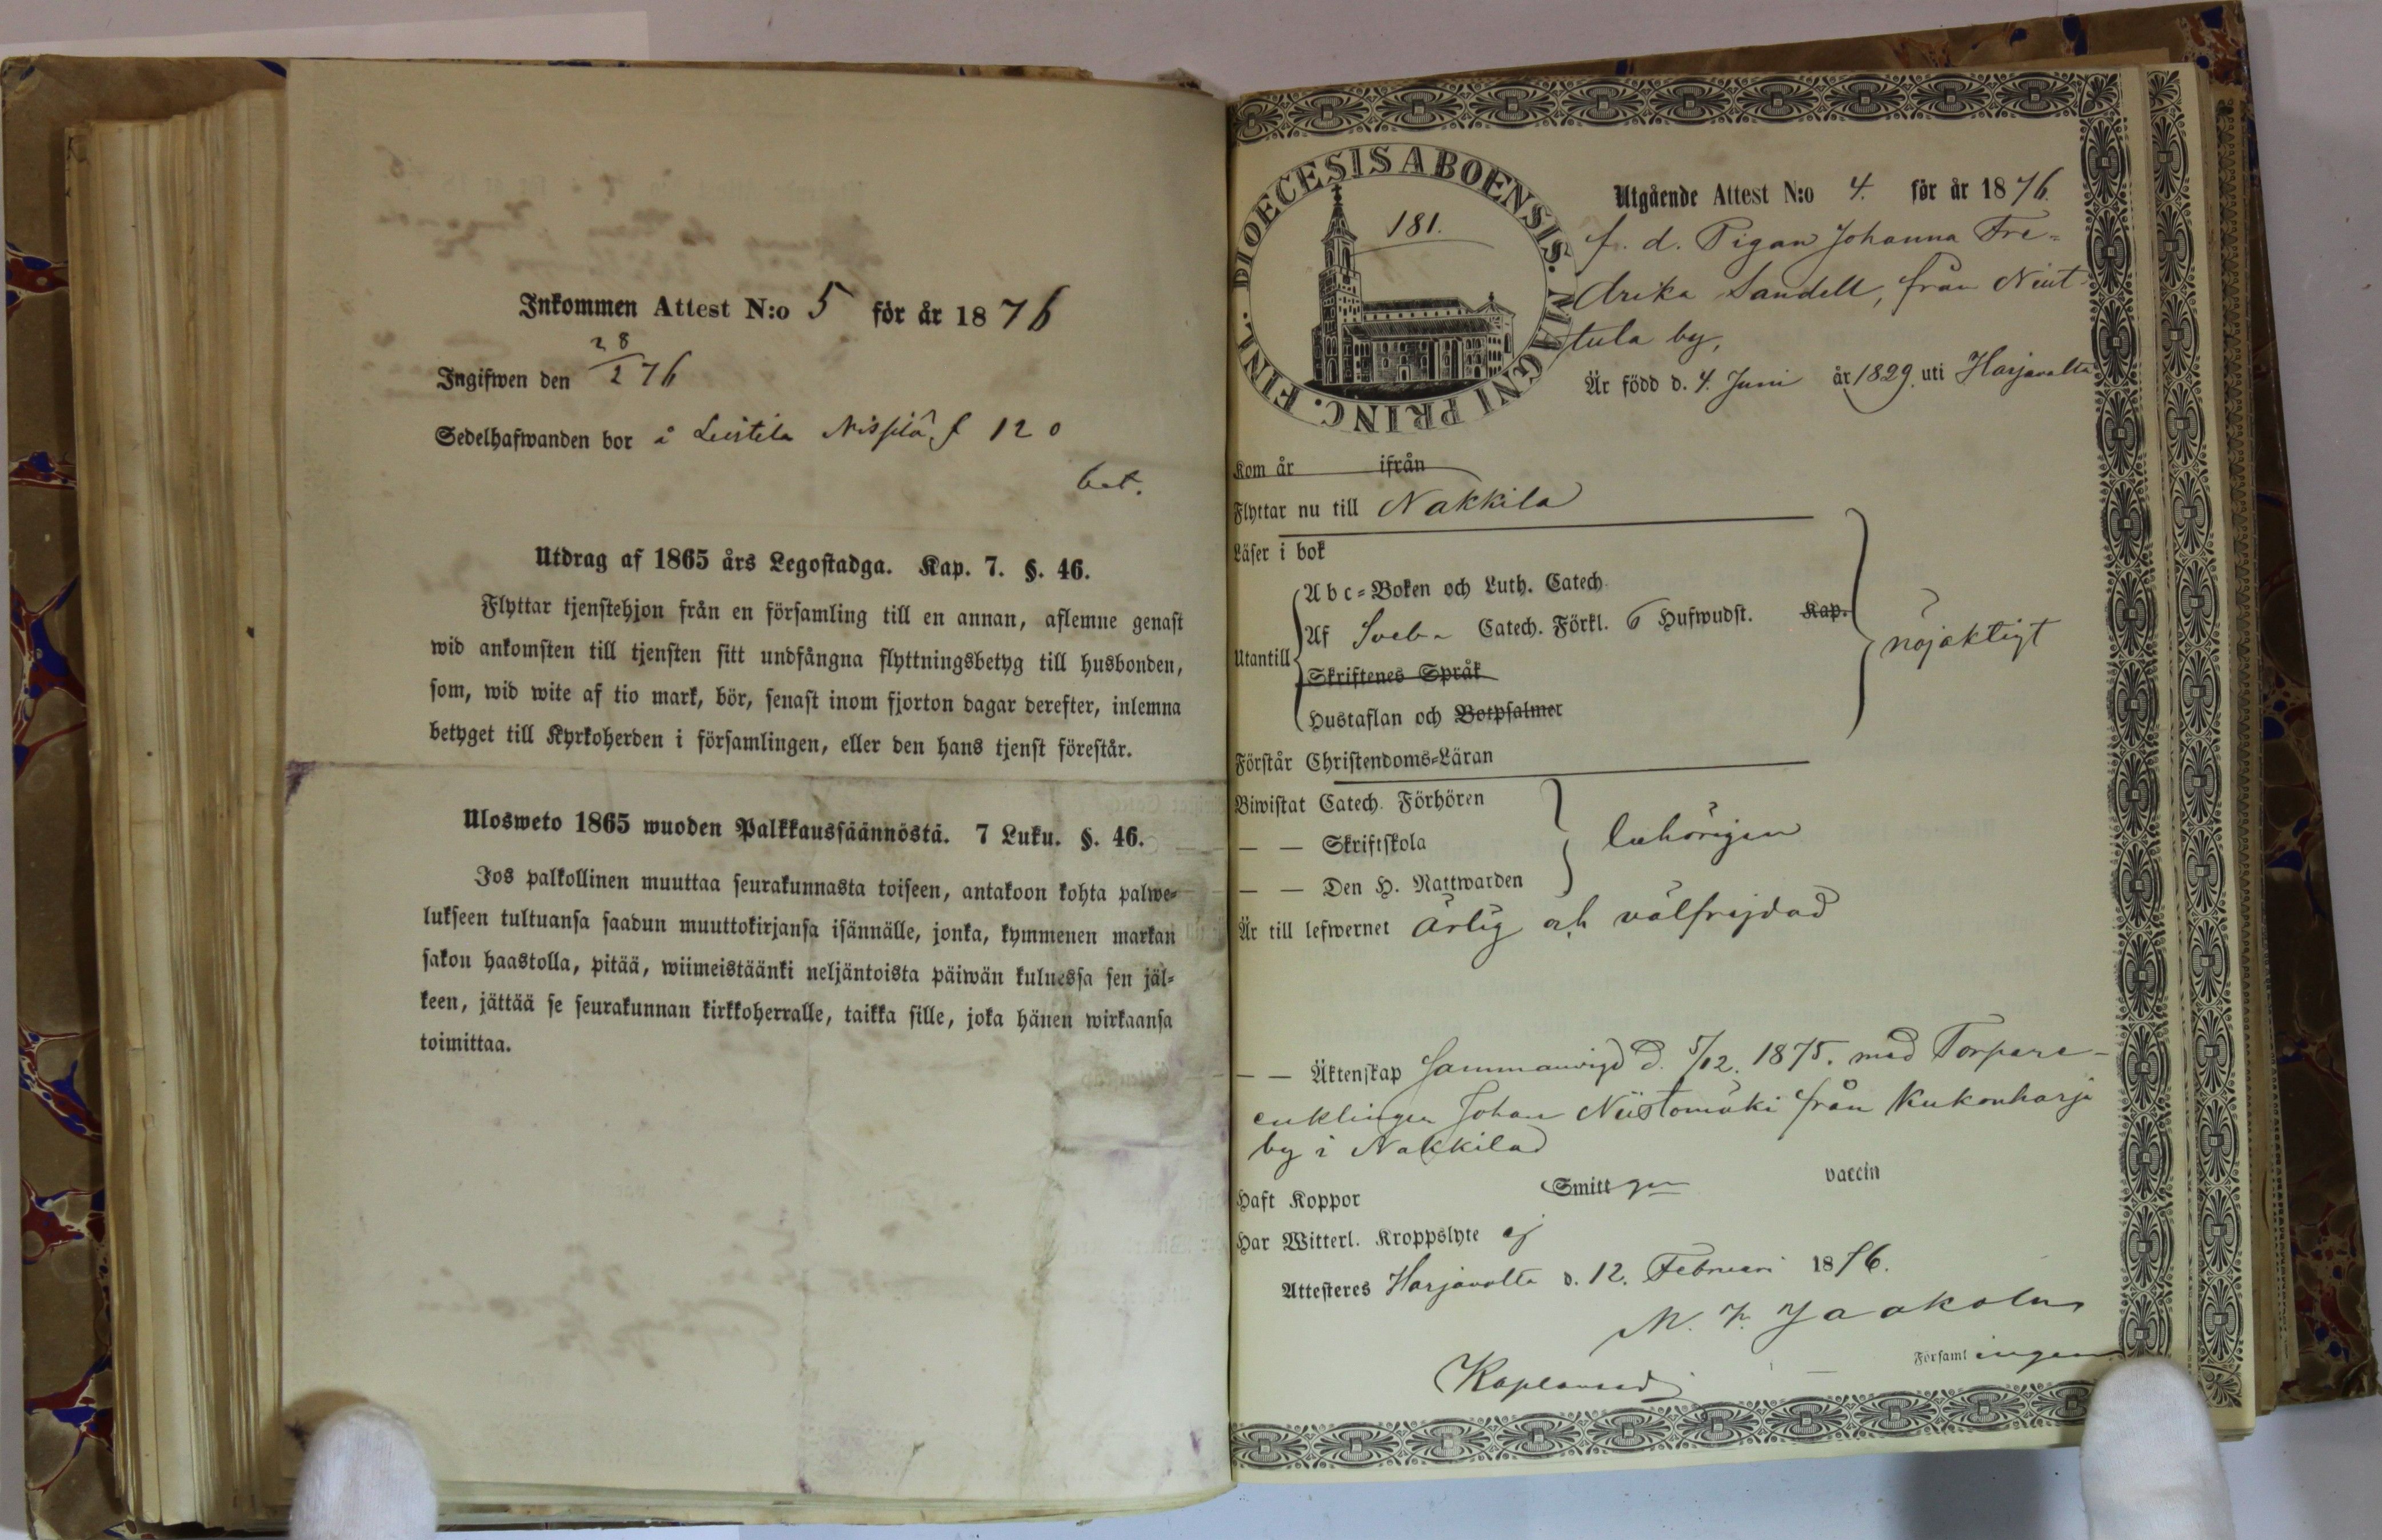 Inkommen Attest N:o 5 för år 1876
Ingifwen den 28/2 76
Sedelhafwanden bor å Leistila f 120
bet.
Utdrag af 1865 års Legostadga. Kap. 7. §. 46.
Flyttar tjenstehjon från en församling till en annan, aflemne genast
wid ankomsten till tjensten sitt undfångna flyttningsbetyg till husbonden,
som, wid wite af tio mark, bör, senast inom fjorton dagar derefter, inlemna
betyget till Kyrkoherden i församlingen, eller den hans tjenst förestår.
Ulosweto 1865 wuoden Palkkaussäännöstä. 7 Luku. §. 46.
Jos palkollinen muuttaa seurakunnasta toiseen, antakoon kohta palwe=
lukseen tultuansa saadun muuttokirjansa isännälle, jonka, kymmenen markan
sakon haastolla, pitää, wiimeistäänki neljäntoista päiwän kuluessa sen jäl=
keen, jättää se seurakunnan kirkkoherralle, taikka sille, joka hänen wirkaansa
toimittaa.
DIOECESIS ABOENSIS. MAGNI PRINC. FINL.
181.
Utgående Attest N:o 4. för år 1876.
f. d. Pigan Johanna Fre=
drika Sandell, från Niut
tula by,
Är född d. 4. Juni år 1829. uti Harjavalta
Kom år ifrån
Flyttar nu till Nakkila
Läser i bok
Abc=Boken och Luth. Catech.
Utantill
Af Sveb. Catech. Förkl. 6 Hufwudst. Kap.
Skriftenes Språk
Hustaflan och Botpsalmer
nöjaktigt
Förstår Christendoms=Läran
Biwistat Catech. Förhören
— — Skriftskola
— — Den H. Nattwarden
behörigen
Är till lefwernet ärlig och välfrejdad
— — Äktenskap Sammanvigd d. 5/12. 1875. med Torpare-
enklingen Johan Niistomäki från Kukonharja
by i Nakkila
Haft Koppor Smitt gn vaccin
Har Witterl. Kroppslyte ej
Attesteres Harjavalta d. 12. Februari 1876.
M. F. Jaakola
Kaplan Församlingen